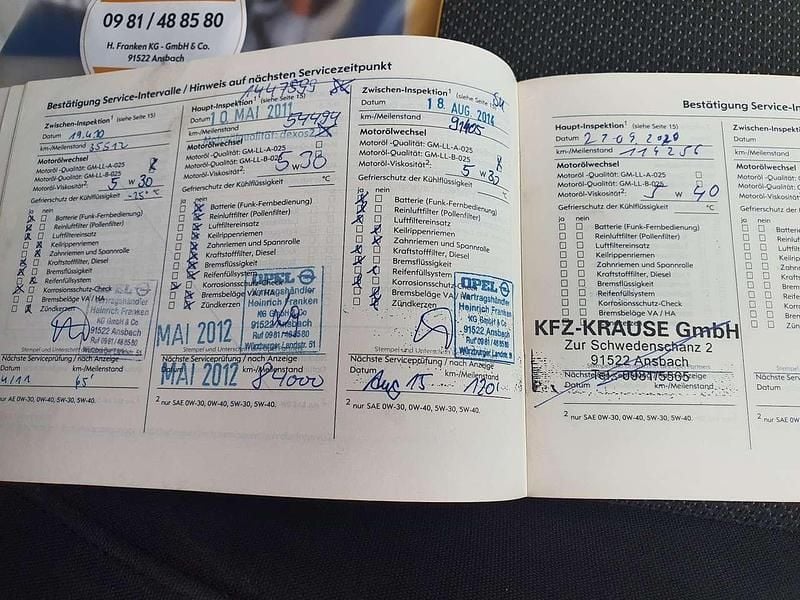 09 81 / 48 85 80
H. Franken KG - GmbH & Co.
91522 Ansbach
Bestätigung Service-Intervalle / Hinweis auf nächsten Servicezeitpunkt
Zwischen-Inspektion¹ (siehe Seite 15)
Datum 19.4.10
km-/Meilenstand 35512
Motorölwechsel
Motoröl-Qualität: GM-LL-A-025
Motoröl-Qualität: GM-LL-B-025
Motoröl-Viskosität²: 5 W 30
Gefrierschutz der Kühlflüssigkeit -25° °C
ja nein
Batterie (Funk-Fernbedienung)
Reinluftfilter (Pollenfilter)
Luftfiltereinsatz
Keilrippenriemen
Zahnriemen und Spannrolle
Kraftstofffilter, Diesel
Bremsflüssigkeit
Reifenfüllsystem
Korrosionsschutz-Check
Bremsbeläge VA / HA
Zündkerzen
Vertragshändler
Heinrich Franken
KG GmbH & Co
91522 Ansbach
Ruf 09 81/48 85 80
Nächste Serviceprüfung / nach Anzeige
Datum km-/Meilenstand
4/11 65
² nur SAE 0W-30, 0W-40, 5W-30, 5W-40.
Haupt-Inspektion¹ (siehe Seite 15)
Datum 10. MAI 2011
km-/Meilenstand 54494
Motorölwechsel
Motoröl-Qualität: GM-LL-A-025
Motoröl-Qualität: GM-LL-B-025
Motoröl-Viskosität²: 5 W 30
Gefrierschutz der Kühlflüssigkeit °C
ja nein
Batterie (Funk-Fernbedienung)
Reinluftfilter (Pollenfilter)
Luftfiltereinsatz
Keilrippenriemen
Zahnriemen und Spannrolle
Kraftstofffilter, Diesel
Bremsflüssigkeit
Reifenfüllsystem
Korrosionsschutz-Check
Bremsbeläge VA / HA
Zündkerzen
OPEL
Vertragshändler
Heinrich Franken
KG GmbH & Co
91522 Ansbach
Ruf 09 81/48 85 80
Würzburger Landstr. 51
MAI 2012
Nächste Serviceprüfung / nach Anzeige
Datum km-/Meilenstand
MAI 2012 84000
² nur SAE 0W-30, 0W-40, 5W-30, 5W-40.
Zwischen-Inspektion¹ (siehe Seite 15)
Datum 18. AUG. 2014
km-/Meilenstand 91405
Motorölwechsel
Motoröl-Qualität: GM-LL-A-025
Motoröl-Qualität: GM-LL-B-025
Motoröl-Viskosität²: 5 W 30
Gefrierschutz der Kühlflüssigkeit °C
ja nein
Batterie (Funk-Fernbedienung)
Reinluftfilter (Pollenfilter)
Luftfiltereinsatz
Keilrippenriemen
Zahnriemen und Spannrolle
Kraftstofffilter, Diesel
Bremsflüssigkeit
Reifenfüllsystem
Korrosionsschutz-Check
Bremsbeläge VA / HA
Zündkerzen
OPEL
Vertragshändler
Heinrich Franken
KG GmbH & Co
91522 Ansbach
Ruf 09 81/48 85 80
Würzburger Landstr. 51
Nächste Serviceprüfung / nach Anzeige
Datum km-/Meilenstand
Aug 15 120
² nur SAE 0W-30, 0W-40, 5W-30, 5W-40.
Bestätigung Service-In
Haupt-Inspektion¹ (siehe Seite 15)
Datum 22.09.2020
km-/Meilenstand 114256
Motorölwechsel
Motoröl-Qualität: GM-LL-A-025
Motoröl-Qualität: GM-LL-B-025
Motoröl-Viskosität²: 5 W 40
Gefrierschutz der Kühlflüssigkeit °C
ja nein
Batterie (Funk-Fernbedienung)
Reinluftfilter (Pollenfilter)
Luftfiltereinsatz
Keilrippenriemen
Zahnriemen und Spannrolle
Kraftstofffilter, Diesel
Bremsflüssigkeit
Reifenfüllsystem
Korrosionsschutz-Check
Bremsbeläge VA / HA
KFZ-KRAUSE GmbH
Zur Schwedenschanz 2
91522 Ansbach
Datum km-/Meilenstand
² nur SAE 0W-30, 0W-40, 5W-30, 5W-40.
Zwischen-Inspektion
Datum
km-/Meilenstand
Motorölwechsel
Motoröl-Qualität: G
Motoröl-Qualität: G
Motoröl-Viskosität²:
Gefrierschutz der
ja nein
Nächste Service
Datum
² nur SAE 0W-30,